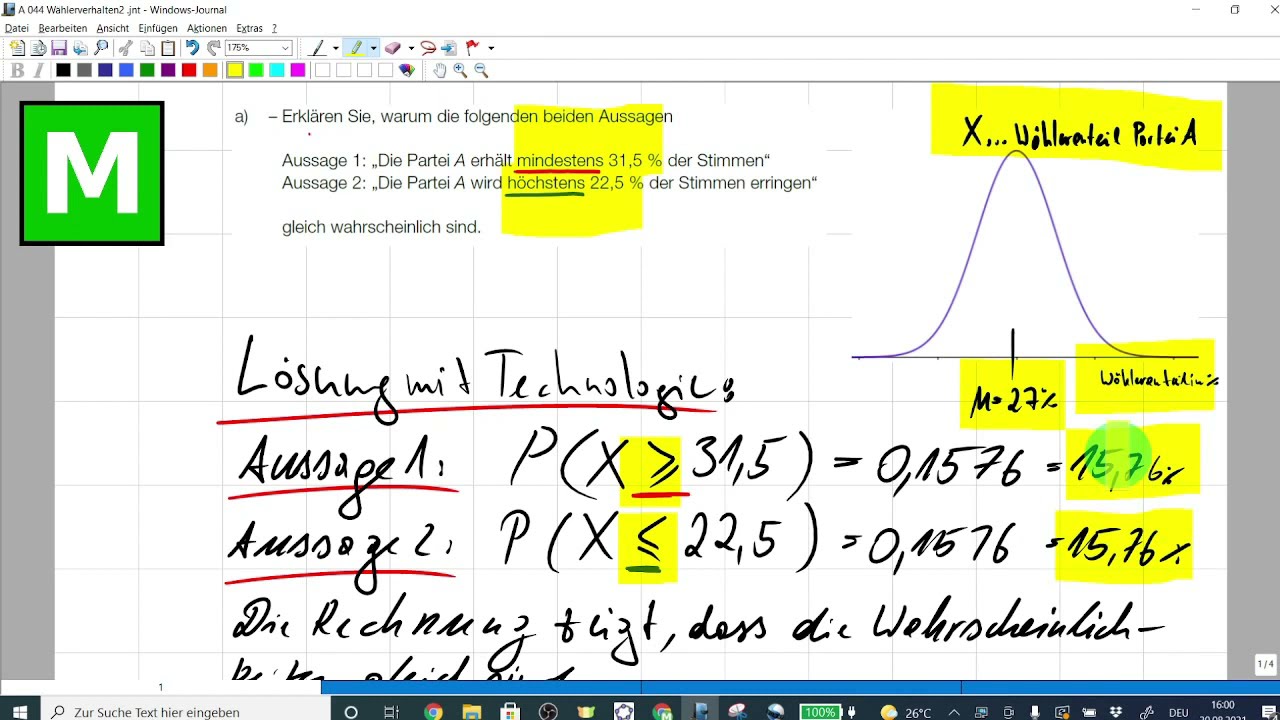 A 044 Wählerverhalten2 .jnt - Windows-Journal
Datei Bearbeiten Ansicht Einfügen Aktionen Extras ?
175%
B I
M
a) – Erklären Sie, warum die folgenden beiden Aussagen
Aussage 1: „Die Partei A erhält mindestens 31,5 % der Stimmen“
Aussage 2: „Die Partei A wird höchstens 22,5 % der Stimmen erringen“
gleich wahrscheinlich sind.
X... Wähleranteil Partei A
Wähleranteil in %
μ = 27%
Lösung mit Technologie:
Aussage 1: P(X ≥ 31,5) = 0,1576 = 15,76%
Aussage 2: P(X ≤ 22,5) = 0,1576 = 15,76%
Die Rechnung zeigt, dass die Wahrscheinlich-
keiten gleich sind
1/4
1
Zur Suche Text hier eingeben
100%
26°C
DEU
16:00
20.08.2021